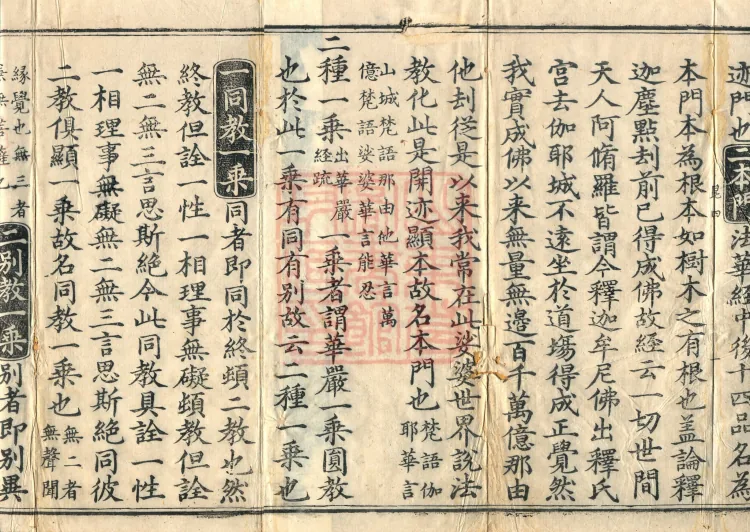 迹門也二本門法華經中後十四品名為
本門本為根本如樹木之有根也盖論釋
迦塵點刦前已得成佛故經云一切世間
天人阿脩羅皆謂今釋迦牟尼佛出釋氏
宫去伽耶城不遠坐於道塲得成正覺然
我實成佛以來無量無邊百千萬億那由
他刦從是以來我常在此娑婆世界說法
教化此是開迹顯本故名本門也梵語伽耶華言
山城梵語那由他華言萬
億梵語娑婆華言能忍
二種一乘出華嚴經疏一乘者謂華嚴一乘圓教
也於此一乘有同有別故云二種一乘也
一同教一乘同者即同於終頓二教也然
終教但詮一性一相理事無礙頓教但詮
無二無三言思斯絶今此同教具詮一性
一相理事無礙無二無三言思斯絶同彼
二教俱顯一乘故名同教一乘也無二者無聲聞
緣覺也無三者
無菩薩也
二別教一乘別者即別異